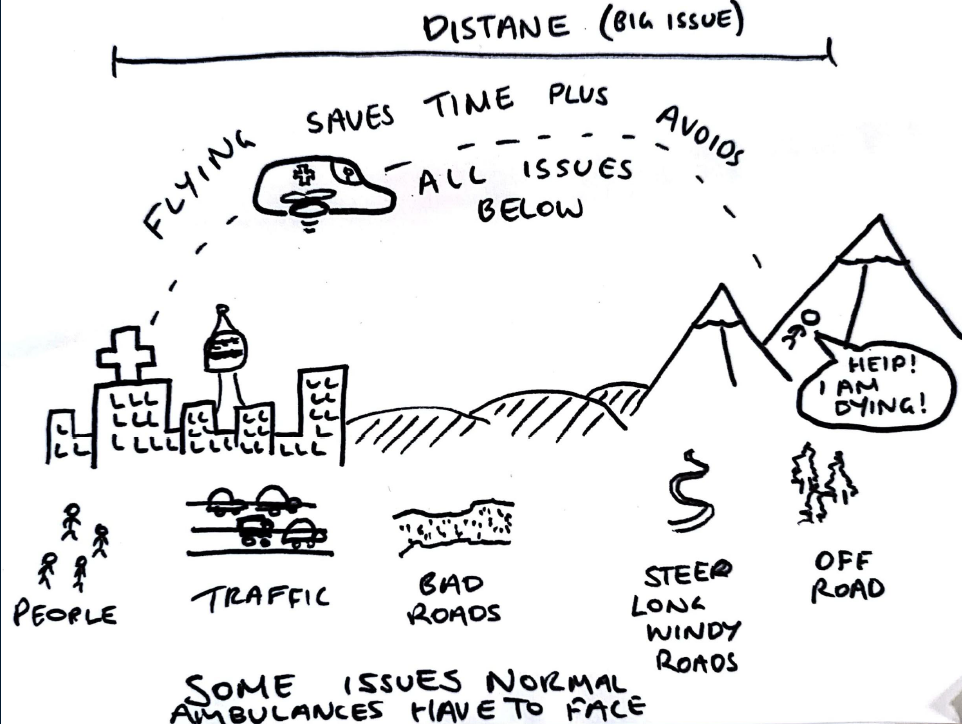 DISTANE (BIG ISSUE)
FLYING SAVES TIME PLUS AVOIDS
ALL ISSUES
BELOW
HEIP!
I AM
DYING!
PEOPLE
TRAFFIC
BAD
ROADS
STEEP
LONG
WINDY
ROADS
OFF
ROAD
SOME ISSUES NORMAL
AMBULANCES HAVE TO FACE